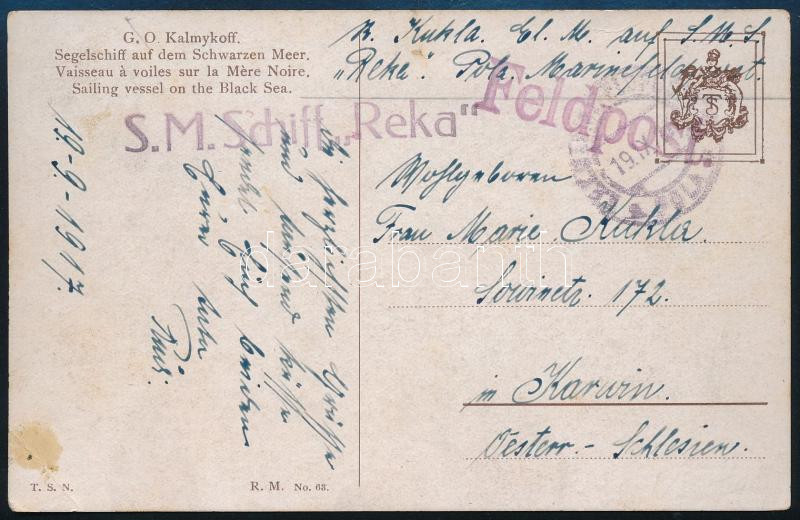 G. O. Kalmykoff.
Segelschiff auf dem Schwarzen Meer.
Vaisseau à voiles sur la Mère Noire.
Sailing vessel on the Black Sea.
R. Kukla. El. M. auf S. M. S.
"Reka". Pola. Marinefeldpost.
S. M. Schiff „Reka"
Feldpost.
19.
POLA
Wohlgeboren
Frau Marie Kukla.
172.
in Karwin.
Oesterr. - Schlesien.
19-9-1917.
Die herzlichsten Grüsse
und tausend Küsse
Euch beiden
Euer
darabanth
T. S. N.
R. M. No. 63.